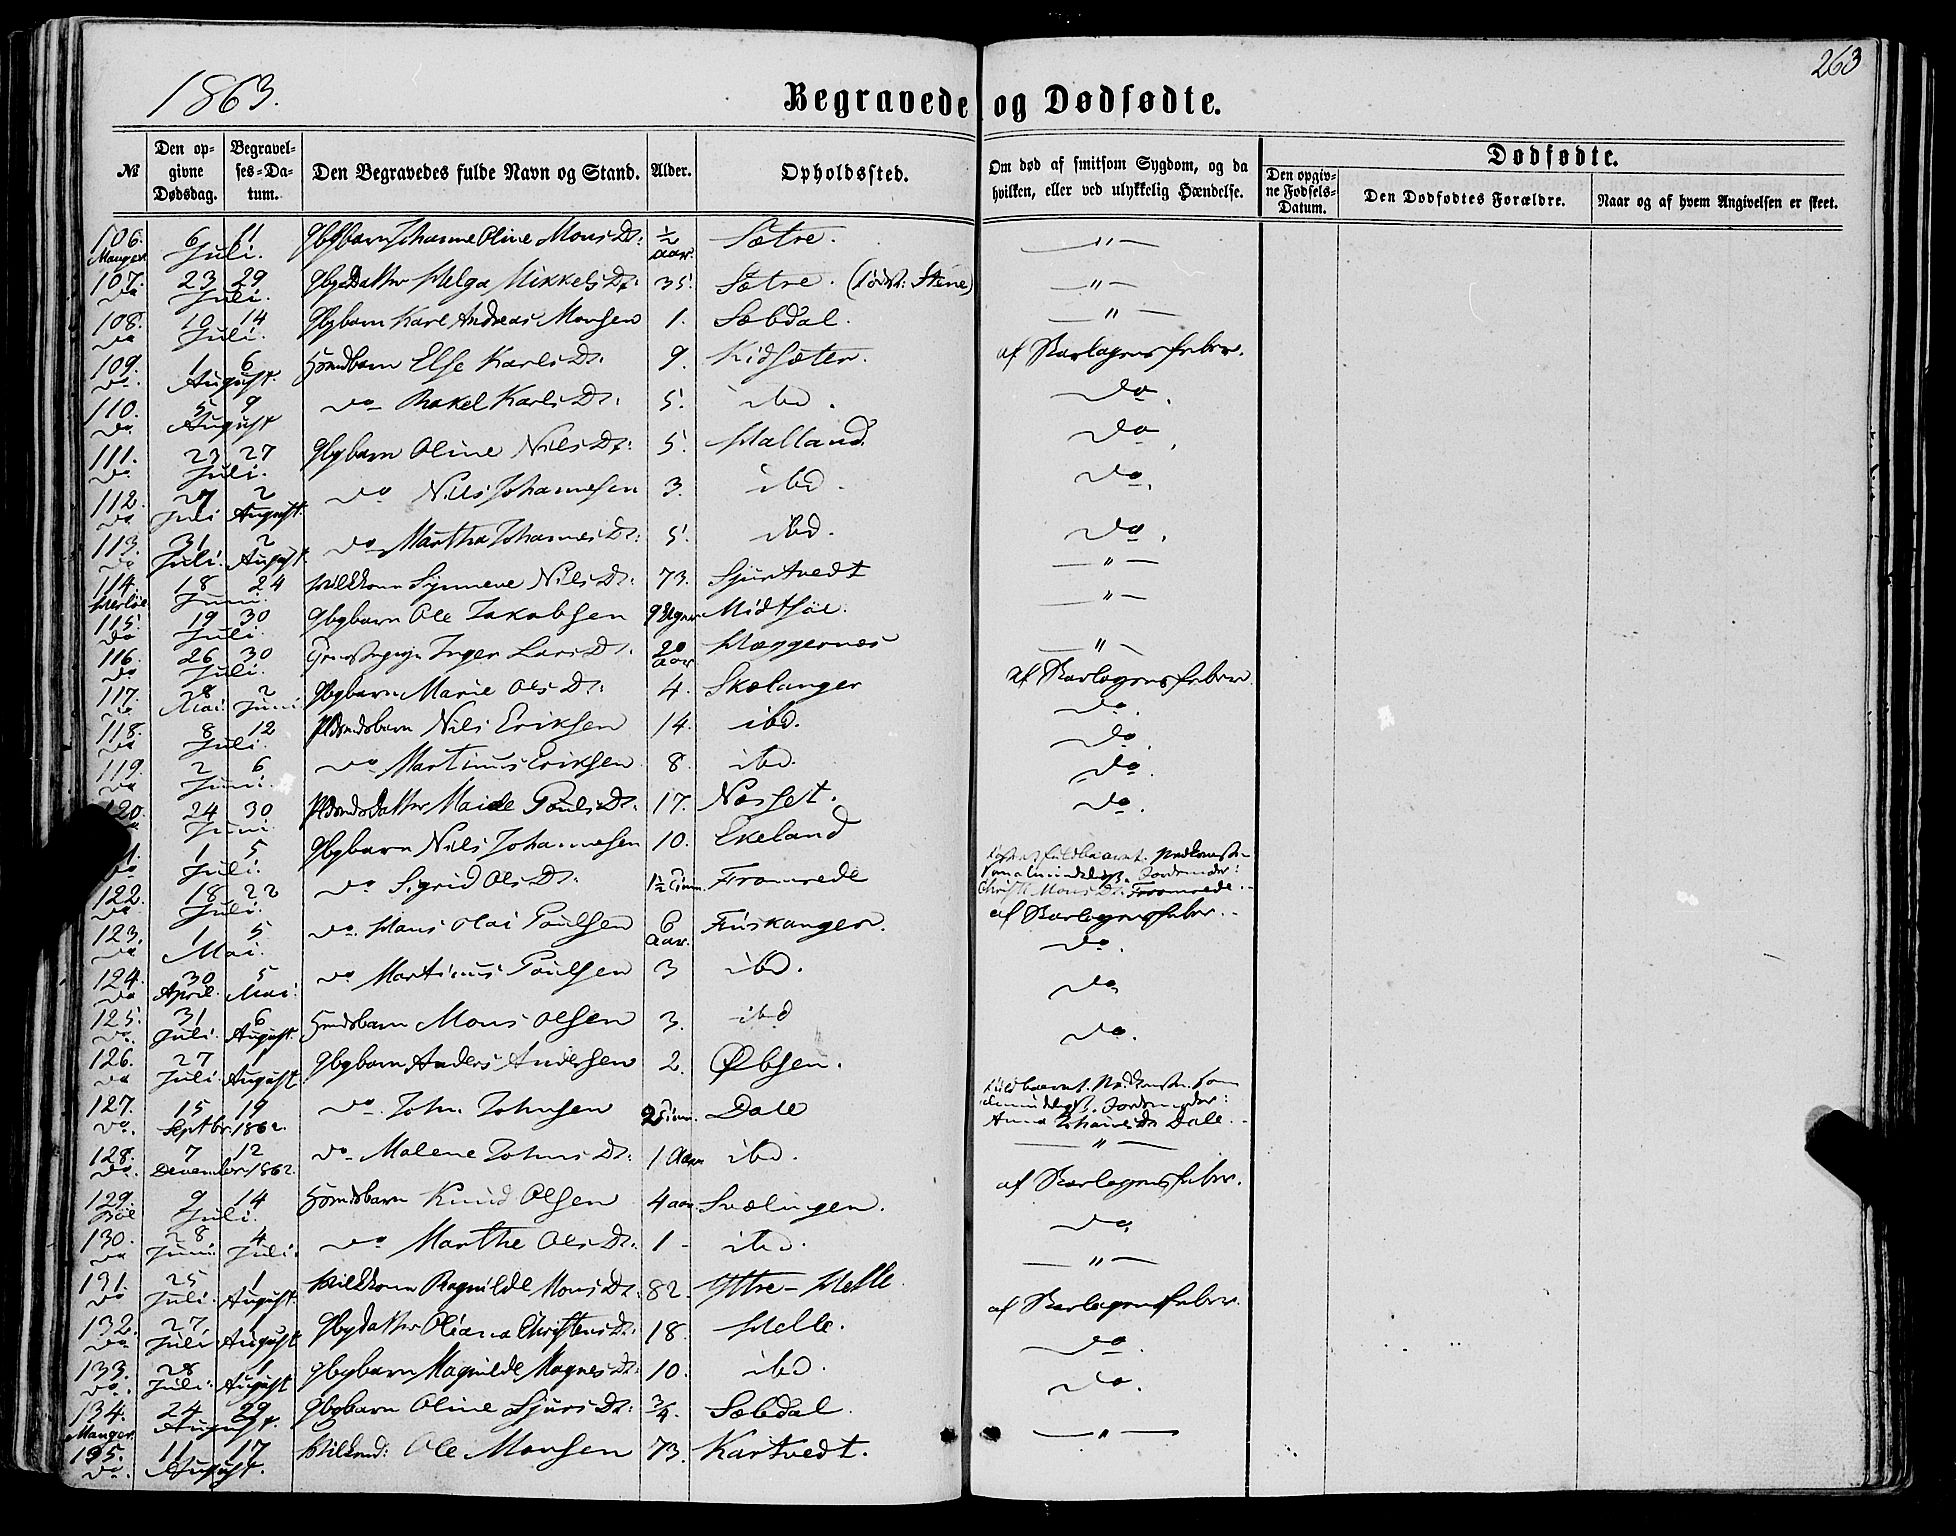 1863.
Begravede og Dødfødte.
263
№
Den opgivne Dødsdag.
Begravelses-Datum.
Den Begravedes fulde Navn og Stand.
Alder.
Opholdssted.
Om død af smitsom Sygdom, og da hvilken, eller ved ulykkelig Hændelse.
Dødfødte.
Den opgivne Fødsels-Datum.
Den Dødfødtes Forældre.
Naar og af hvem Angivelsen er skeet.
106. Manger 6 11 Juli. Gbgbarn Johanne Oline Mons Dr: ½ aar. Sætre. — " —
107. do 23 29 Juli. Helga Mikkels Dr: 35. Sætre. — " —
108. do 10 14 Juli. Gbgbarn Karl Andreas Monsen 1. Sæbdal. — " —
109. do. 1 6 August. Else Karls Dr: 9. Kidsæter. af Skarlagensfeber.
110. do. 5 9 August do Rakel Karls Dr: 5. ibd. do.
111. do 23 27 Juli. Gbgbarn Oline Nils Dr: 5. Halland. do.
112. do 27 Juli 2 August. do Nils Johannesen 3. ibd. do.
113. do 31 Juli. 2 August. do Martha Johannes Dr: 5. ibd. do.
114. Herløe 18 24 Juni. Synneve Nils Dr: 73. Sjurtvedt — " —
115. do 19 30 Juli. Gbgbarn Ole Jakobsen 9 Uger Midtsøe. — " —
116. do 26 30 Juli. Inger Lars Dr. 20 aar Hæggernæs — " —
117. do 28 Mai 2 Juni Gbgbarn Marie Ols Dr: 4. Skælanger af Skarlagensfeber.
118. do 8 12 Juli. Nils Eriksen 14. ibd. do.
119. do 2 6 Juni. do Martinus Eriksen 8. ibd. do.
120. 24 30 Juni Pouls Dr: 17. Næsset. do.
1 5 Juli. Gbgbarn Nils Johannesen 10. Ekeland do.
122. do 18 22 Juli. do Sigrid Ols Dr: 1½ Tim. Fromrede Mons Dr. Fromrede.
123. do 1 5 Mai. do. Hans Olai Poulsen 6 Aar. Fuskanger. af Skarlagensfeber.
124. do 30 April. 5 Mai. do Martinus Poulsen 3 ibd. do.
125. do. 31 Juli. 6 August. Mons Olsen 3. ibd do
126. do 27 Juli 1 August. Gbgbarn Anders Andersen 2. Øbsen. do.
127. do. 15 19 Septbr. 1862. do. John Johnsen 2 Tim. Dale Anna Dale.
128. do. 7 12 December 1862. do Malene Johns Dr: 1 Aar ibd. — " —
129. Bøe 9 14 Juli. Knud Olsen 4 aar Svælingen. af Skarlagensfeber.
130. do 28 Juni 4 Juli. do Marthe Ols Dr: 1 - ibd. do
131. do 25 Juli. 1 August. Ragnilde Mons Dr: 82. Ytre-Helle — " —
132. do 27 Juli 1 August Oliana Christens Dr: 18. Helle. af Skarlagensfeber.
133. do. 28 Juli. 1 August Gbgbarn Magnilde Magnes Dr: 10. ibd. do.
134. Manger. 24 29 August. Gbgbarn Oline Sjurs Dr: ¾. Sæbdal. do.
135. do. 11 17 August. Ole Monsen 73. Kartvedt. — " —